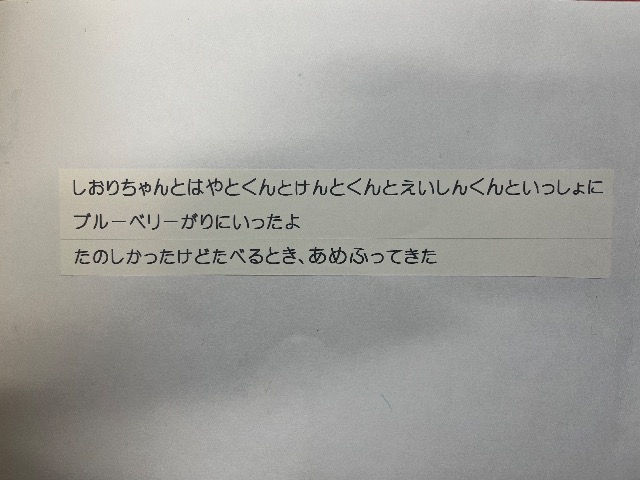 しおりちゃんとはやとくんとけんとくんとえいしんくんといっしょに
ブルーベリーがりにいったよ
たのしかったけどたべるとき、あめふってきた